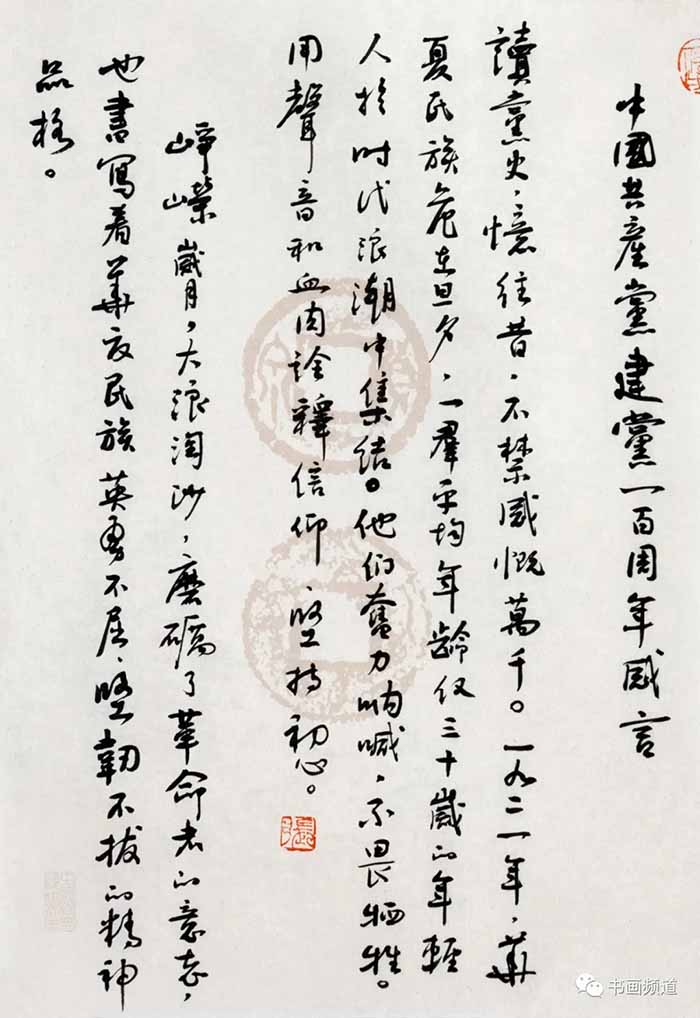 中國共產黨建黨一百周年感言
讀黨史，憶往昔，不禁感慨萬千。一九二一年，華
夏民族危在旦夕，一群平均年齡仅三十歲的年輕
人於时代浪潮中集结。他们奮力吶喊，不畏牺牲。
用聲音和血肉詮釋信仰、堅持初心。
崢嶸歲月，大浪淘沙，磨礪了革命者的意志，
也書寫着華夏民族英勇不屈、堅韌不拔的精神
品格。
书画频道